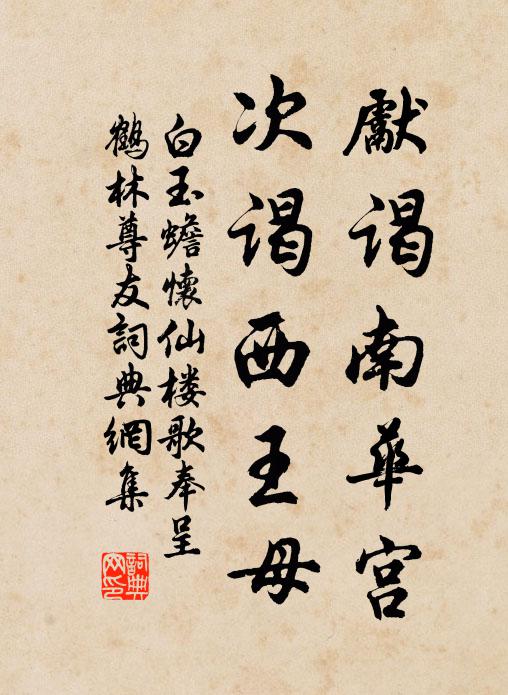 獻谒南華宮
次谒西王母
白玉蟾懷仙楼歌奉呈
鶴林尊友詞典網集
詞典網印